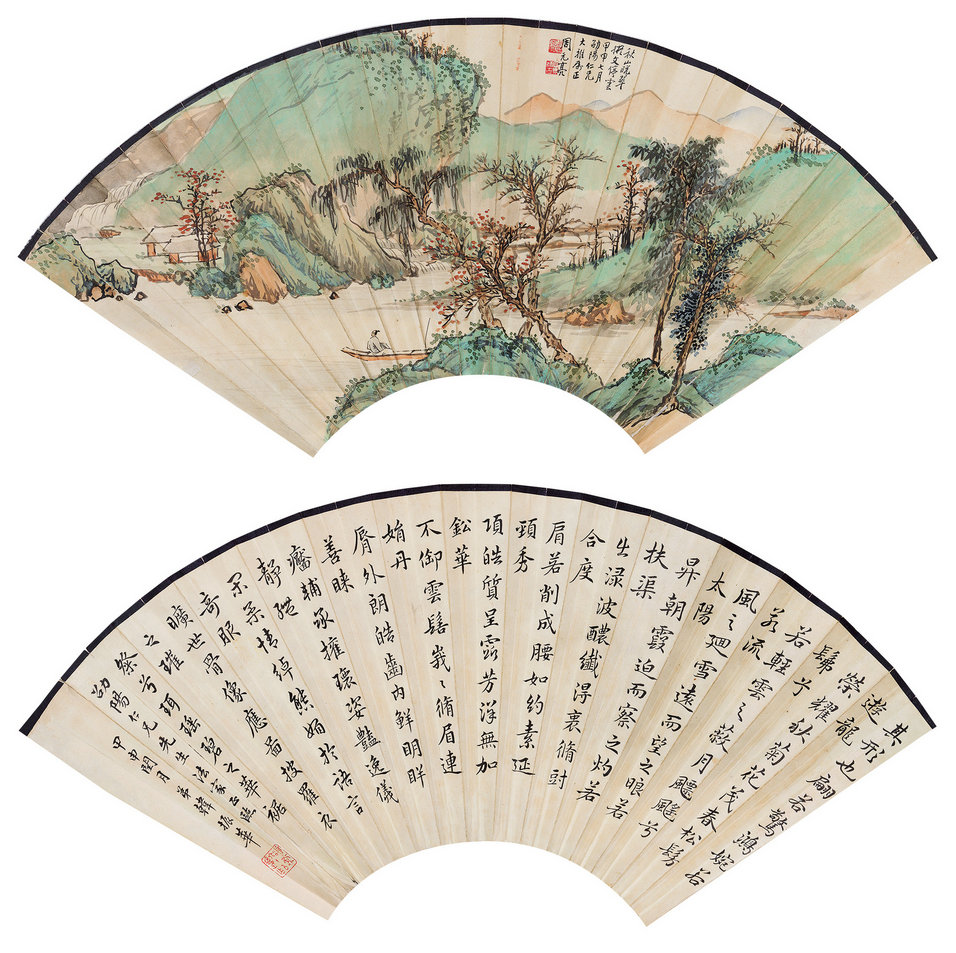 秋山晚翠
橅文停雲
甲申七月
劭陽仁兄
大雅屬正
周元亮
其形也翩若驚鴻婉若
遊龍
榮耀秋菊花茂春松髣
髴兮
若輕雲之蔽月飄飖兮
若流
風之迴雪遠而望之皎若
太陽
昇朝霞迫而察之灼若
扶渠
出淥波醲纖得衷脩短
合度
肩若削成腰如約素延
頸秀
項皓質呈露芳澤無加
鉛華
不御雲髻峩〻脩眉連
娟丹
脣外朗皓齒內鮮明眸
善睞
靨輔承權瓌姿豔逸儀
靜體
閑柔情綽態媚於語言
奇服
曠世骨像應圖披羅衣
之璀
粲兮珥瑤碧之華琚
劭陽仁兄先生法家正臨
甲申閏月弟韓振華